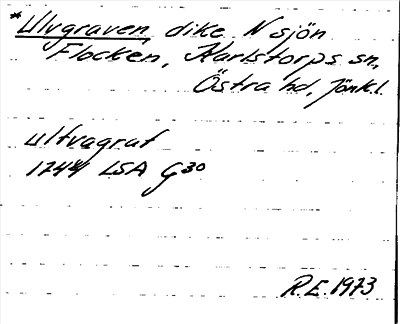 *Ulvgraven, dike N sjön
Flocken, Karlstorps sn,
Östra hd, Jönk.l.
ulfvagraf
1744 LSA G30
R.E. 1973